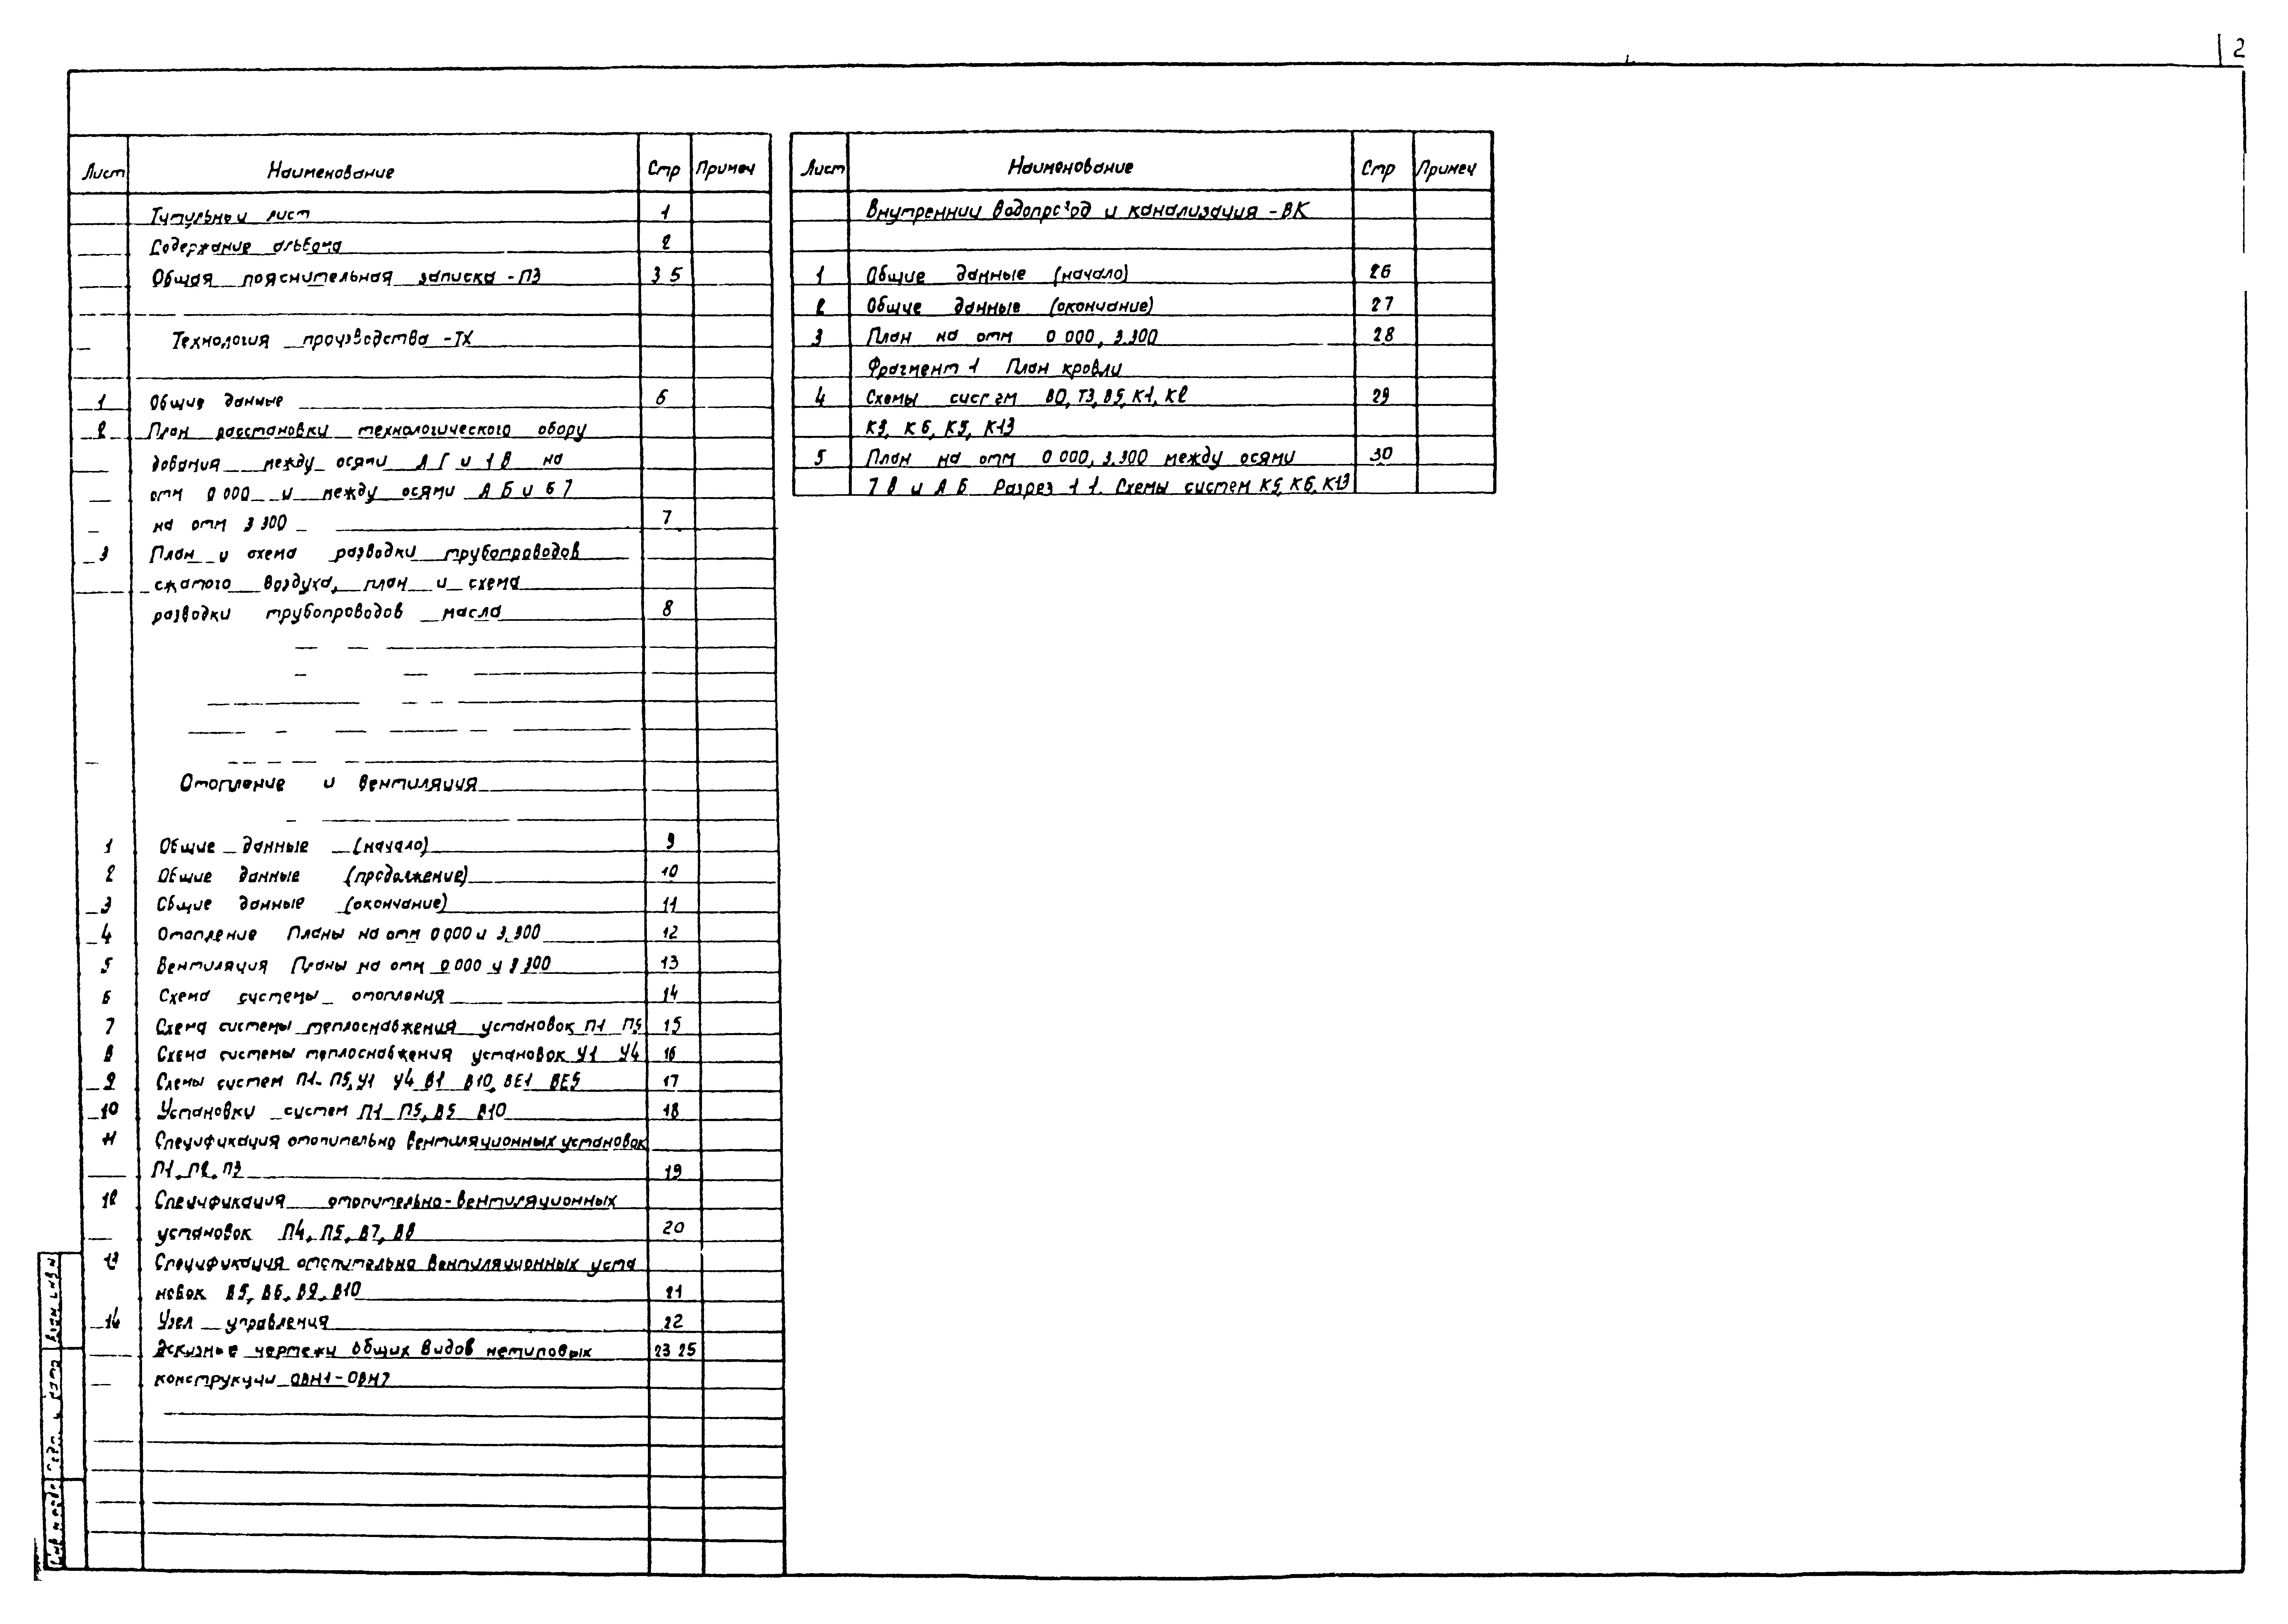 2
Лист Наименование Стр Примеч
Титульный лист 1
Содержание альбома 2
Общая пояснительная записка -ПЗ 3 5
Технология производства -ТХ
1 Общие данные 6
2 План расстановки технологического обору
дования между осями А Г и 1 8 на
отм 0 000 и между осями А Б и 6 7
на отм 3 300 7
3 План и схема разводки трубопроводов
сжатого воздуха, план и схема
разводки трубопроводов масла 8
Отопление и вентиляция
1 Общие данные (начало) 9
2 Общие данные (продолжение) 10
3 Общие данные (окончание) 11
4 Отопление Планы на отм 0,000 и 3,300 12
5 Вентиляция Планы на отм 0 000 и 3 300 13
6 Схема системы отопления 14
7 Схема системы теплоснабжения установок П1 П5 15
8 Схема системы теплоснабжения установок У1 У4 16
9 Схемы систем П1-П5, У1 У4 В1 В10, ВЕ1 ВЕ5 17
10 Установки систем П1 П5, В5 В10 18
11 Спецификация отопительно вентиляционных установок
П1, П2, П3 19
12 Спецификация отопительно-вентиляционных
установок П4, П5, В7, В8 20
13 Спецификация отопительно вентиляционных уста
новок В5, В6, В9, В10 21
14 Узел управления 22
Эскизные чертежи общих видов нетиповых 23 25
конструкций ОВН1-ОВН7
Лист Наименование Стр Примеч
Внутренний водопровод и канализация -ВК
1 Общие данные (начало) 26
2 Общие данные (окончание) 27
3 План на отм 0 000, 3.300 28
Фрагмент 1 План кровли
4 Схемы систем В0, Т3, В5, К1, К2 29
К3, К6, К5, К13
5 План на отм 0 000, 3.300 между осями 30
7 8 и А Б Разрез 1 1. Схемы систем К5, К6, К13
Взам инв N
Подп и дата